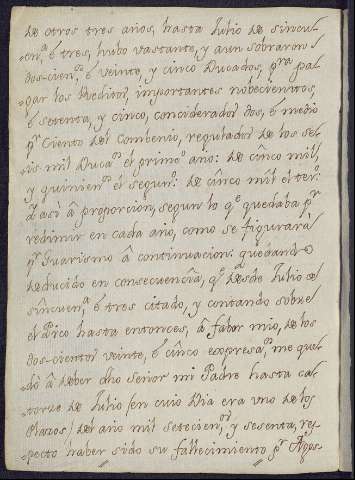 de otros tres años, hasta Julio de sincu-
en.ta é tres, hubo vastante, y aun sobraron
dos-cien.s é veinte, y cinco Ducados, p.ra pa-
gar los Reditos, importantes nobecientos,
é setenta, y cinco, conciderados dos, é medio
p.r Ciento del Combenio, regulados de los se-
is mil Duca.s el prime.o año: de cinco mil,
y quinien.s el segun.o: de cinco mil el ter.o
a asi á proporcion, segun lo q.e quedaba p.r
redimir en cada año, como se figurará
p.r Guarismo á continuacion: quedando
deducido en consecuencia, q.e desde Julio de
sincuen.a é tres citado, y contando sobre
el hasta entonces, á fabor mio, de los
dos-cientos veinte, é cinco expresa.s me que-
dó á deber dho Señor mi Padre hasta ca-
torze de Julio (en cuio Dia era uno de los
Plazos) del año mil setecien.s y sesenta, res-
pecto haber sido su fallecimiento p.r Agos-